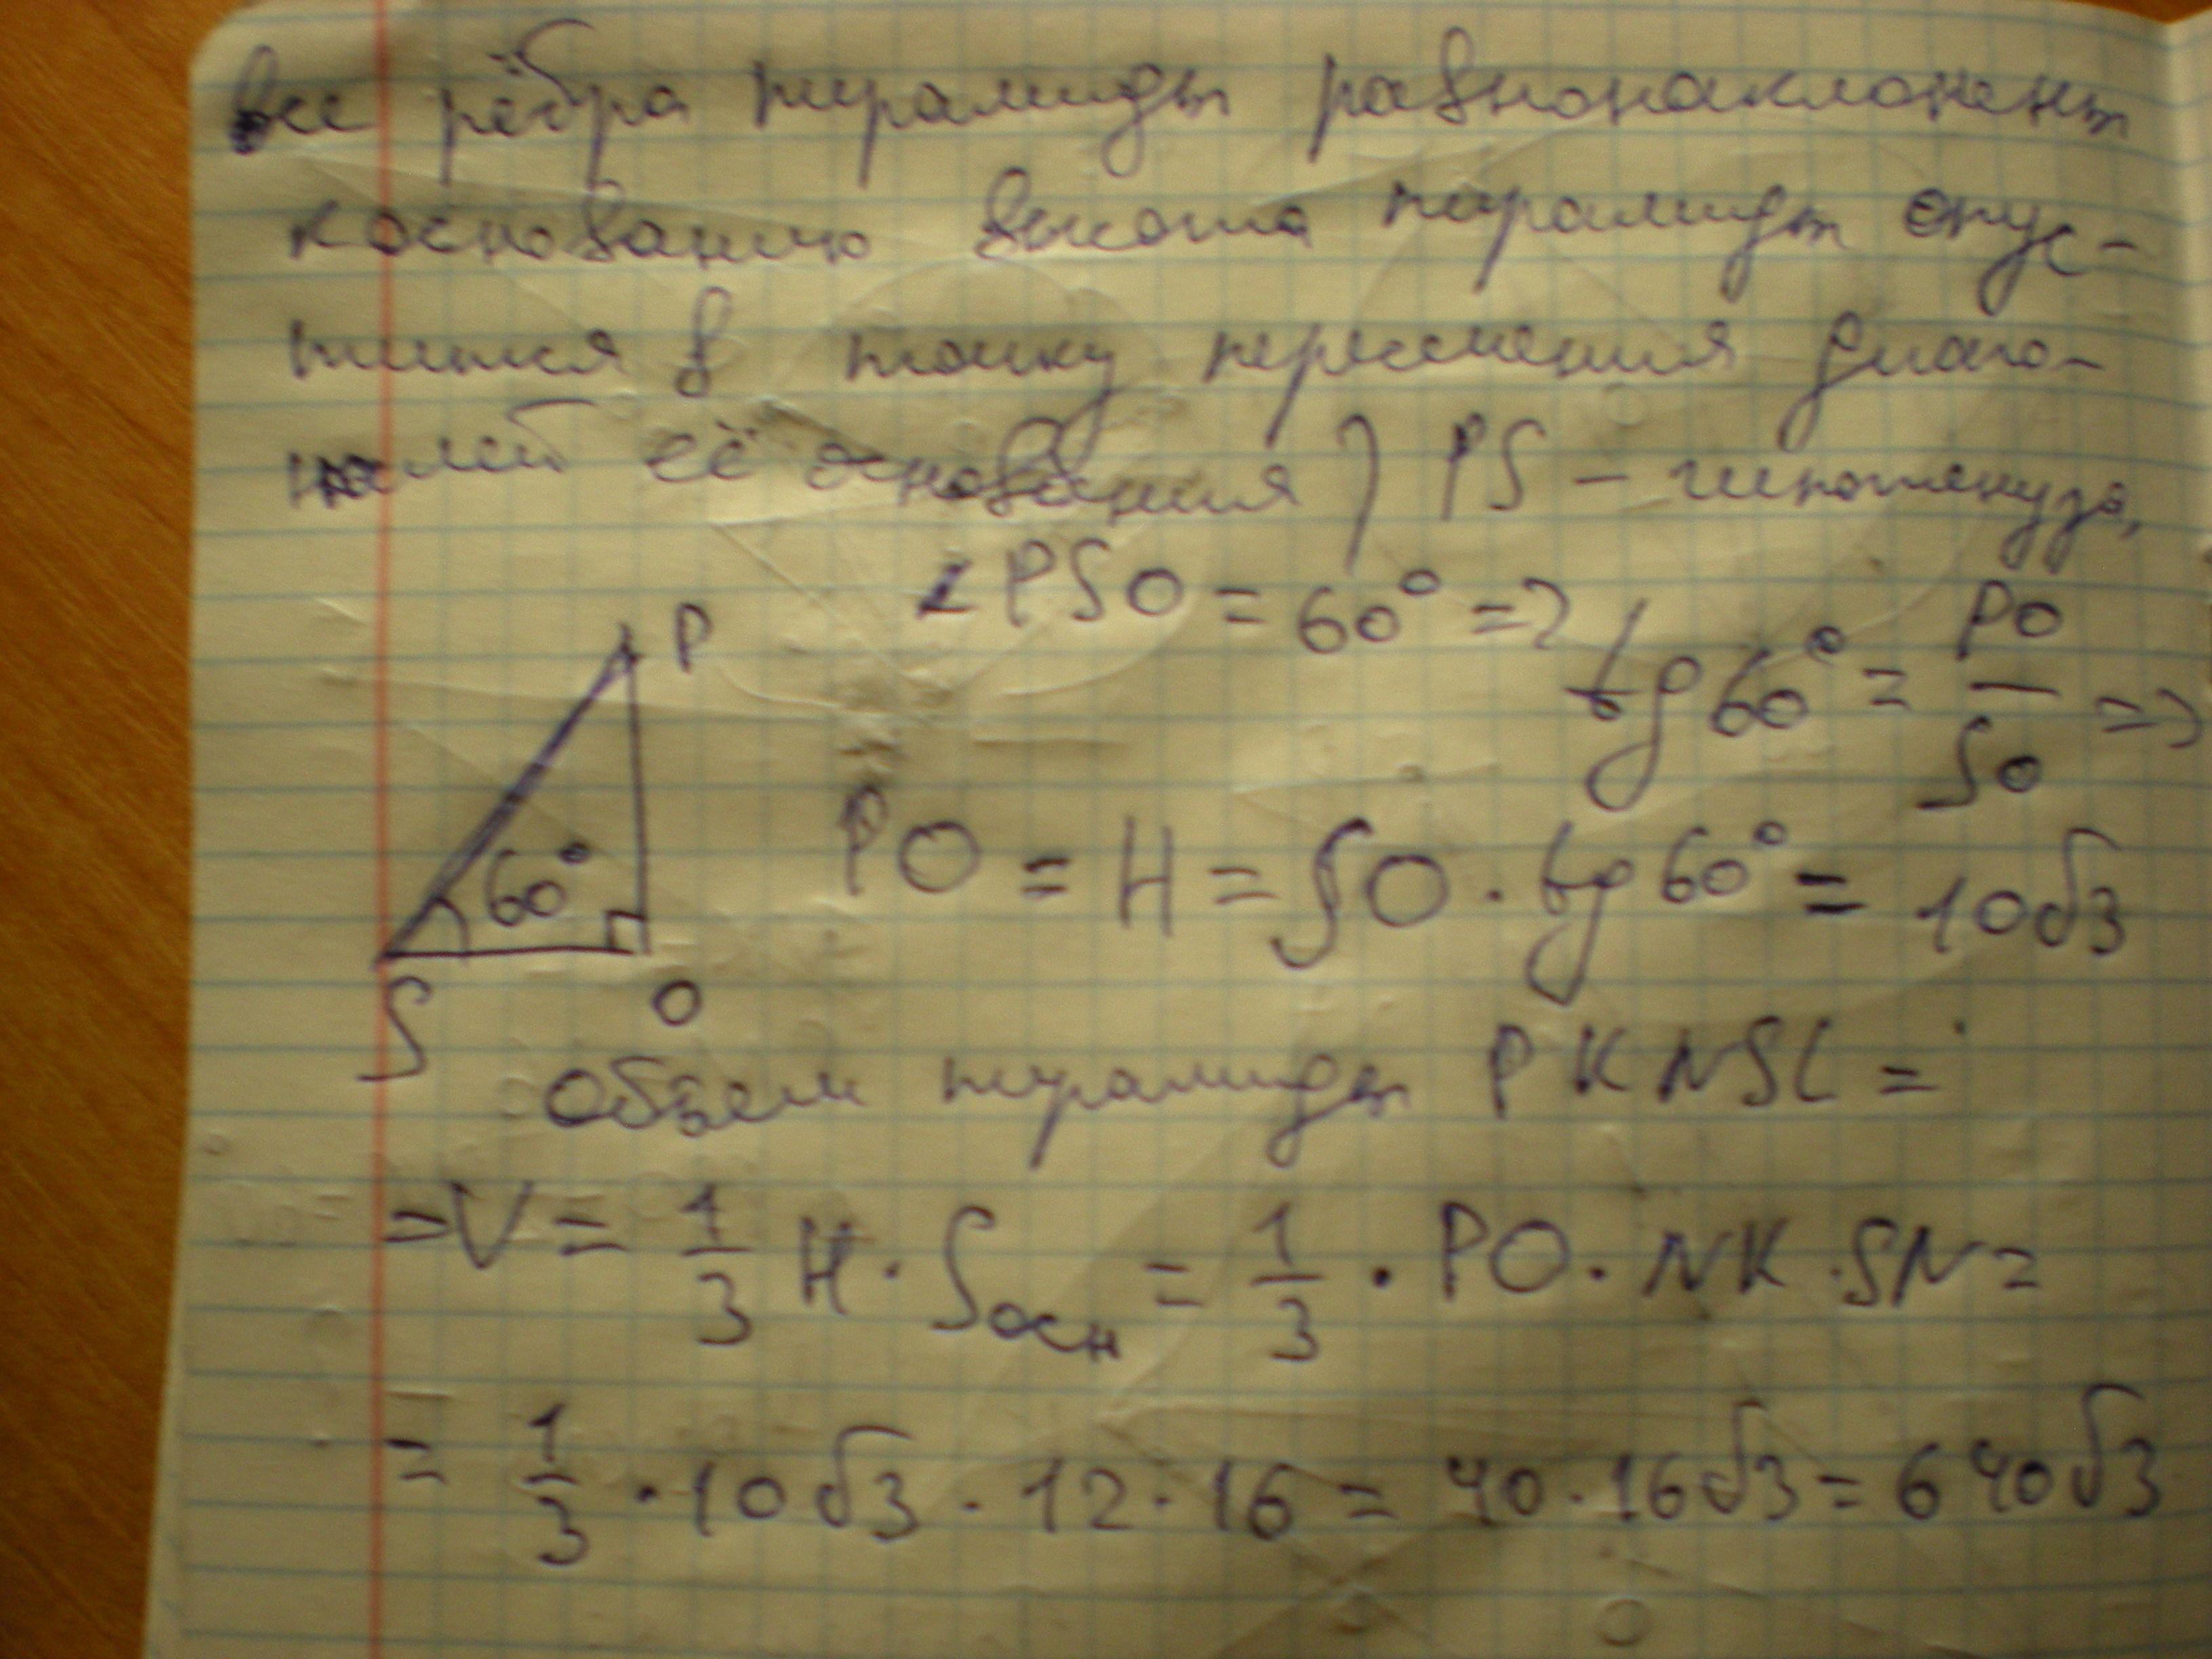 все рёбра пирамиды равнонаклонены
к основанию высота пирамиды опус-
тится в точку пересечения диаго-
налей её основания) PS - гипотенуза,
∠PSO = 60° => tg 60° = PO/SO =>
P
60°
S
O
PO = H = SO · tg 60° = 10√3
Объем пирамиды PKNSL =
= V = 1/3 H · Sосн = 1/3 · PO · NK · SN =
= 1/3 · 10√3 · 12 · 16 = 40 · 16√3 = 640√3